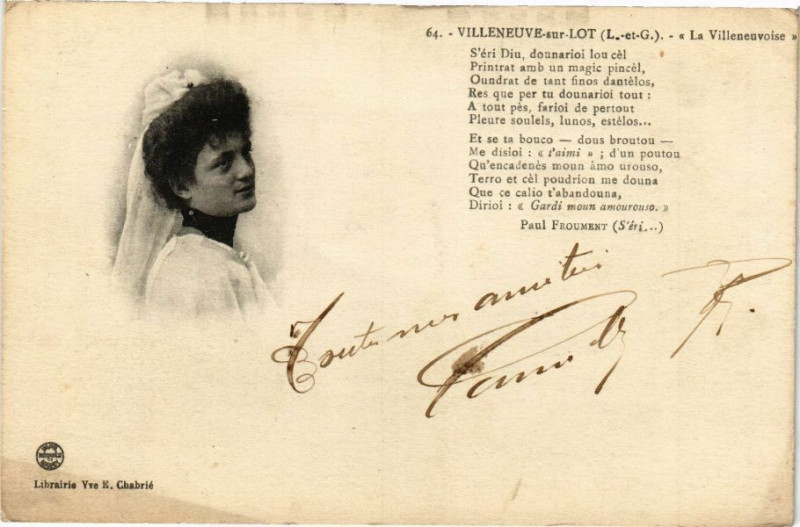 64. - VILLENEUVE-sur-LOT (L.-et-G.). - « La Villeneuvoise »
S'éri Diu, dounarioi lou cèl
Printrat amb un magic pincèl,
Oundrat de tant finos dantèlos,
Res que per tu dounarioi tout :
A tout pès, farioi de pertout
Pleure soulels, lunos, estèlos...
Et se ta bouco — dous broutou —
Me disioi : « t'aimi » ; d'un poutou
Qu'encadenès moun âmo urouso,
Terro et cèl poudrion me douna
Que ce calio t'abandouna,
Dirioi : « Gardi moun amourouso. »
Paul FROUMENT (S'éri...)
Toutes nos amitiés
Librairie Vve E. Chabrié